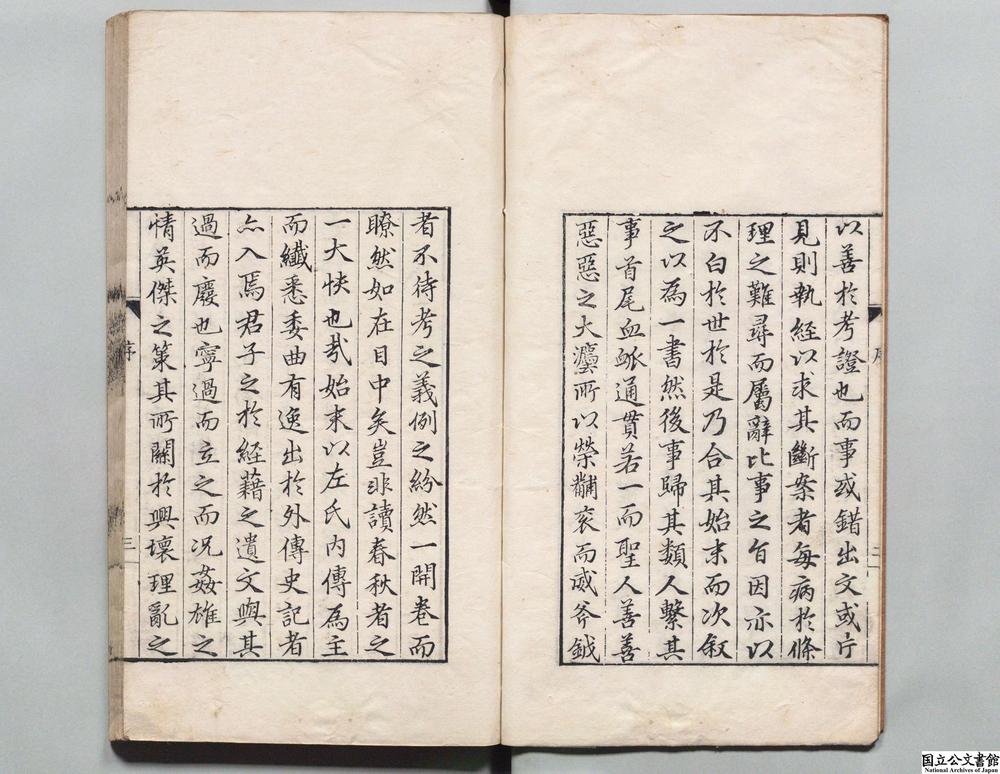 以善於考證也而事或錯出文或片
見則執經以求其斷案者每病於條
理之難尋而屬辭比事之旨因亦以
不白於世於是乃合其始末而次叙
之以為一書然後事歸其類人繫其
事首尾血脈通貫若一而聖人善善
惡惡之大灋所以榮黼衮而威斧鉞
二
者不待考之義例之紛然一開卷而
瞭然如在目中矣豈非讀春秋者之
一大快也哉始末以左氏內傳為主
而纖悉委曲有逸出於外傳史記者
亦入焉君子之於經藉之遺文與其
過而廢也寧過而立之而況姦雄之
情英傑之策其所關於興壞理亂之
序
三
国立公文書館
National Archives of Japan